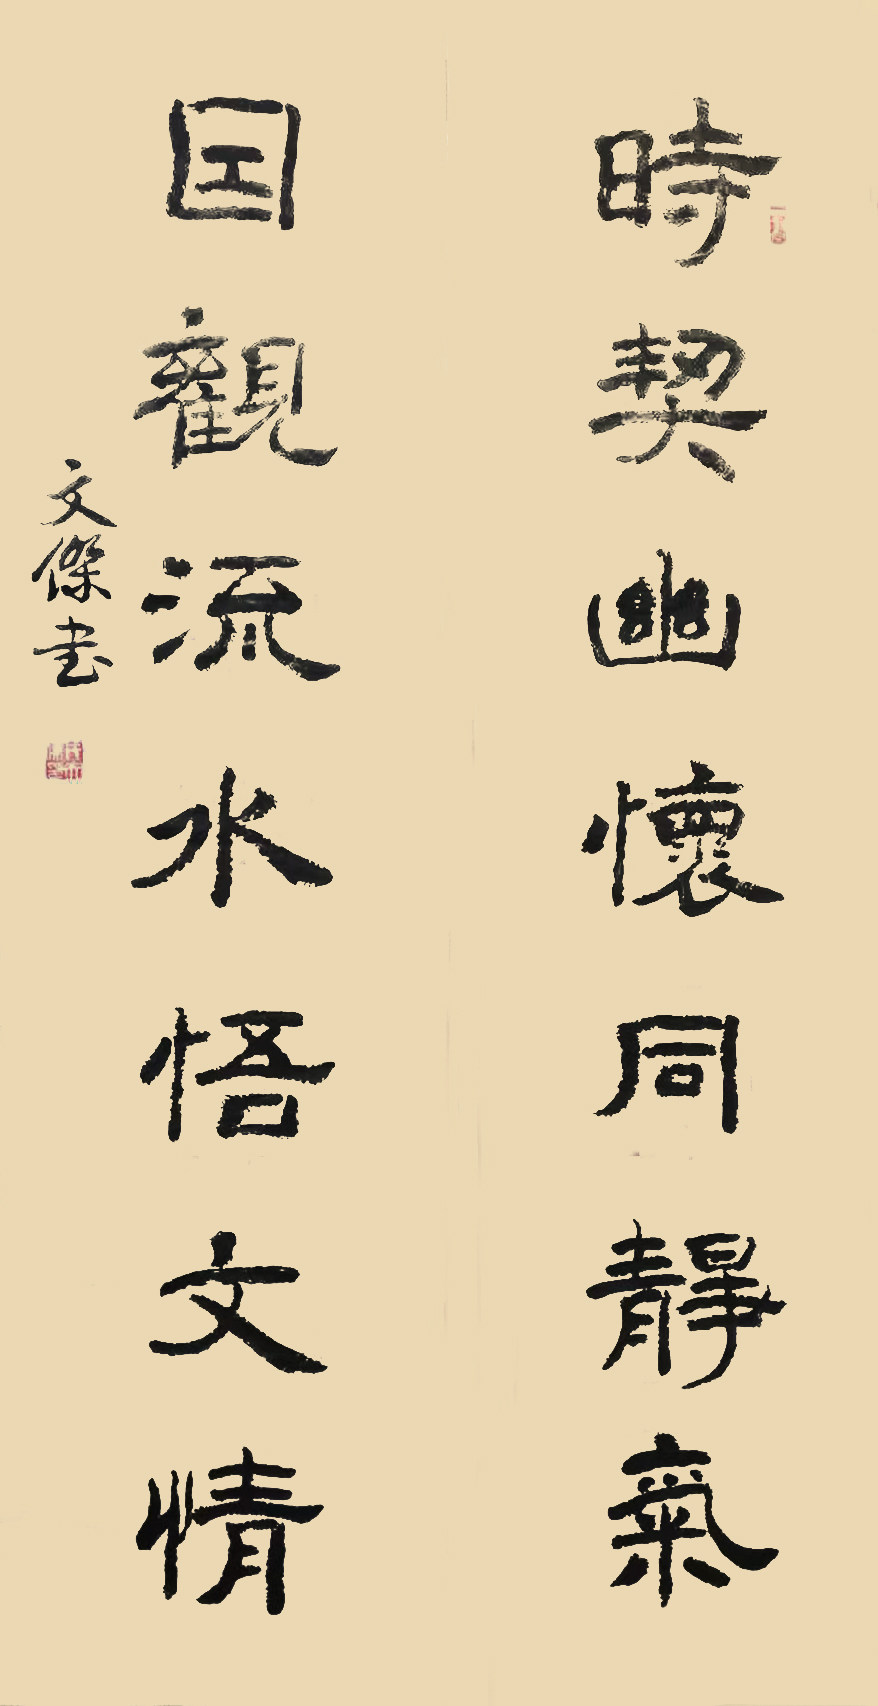 時契幽懷同靜氣
因觀流水悟文情
文傑書